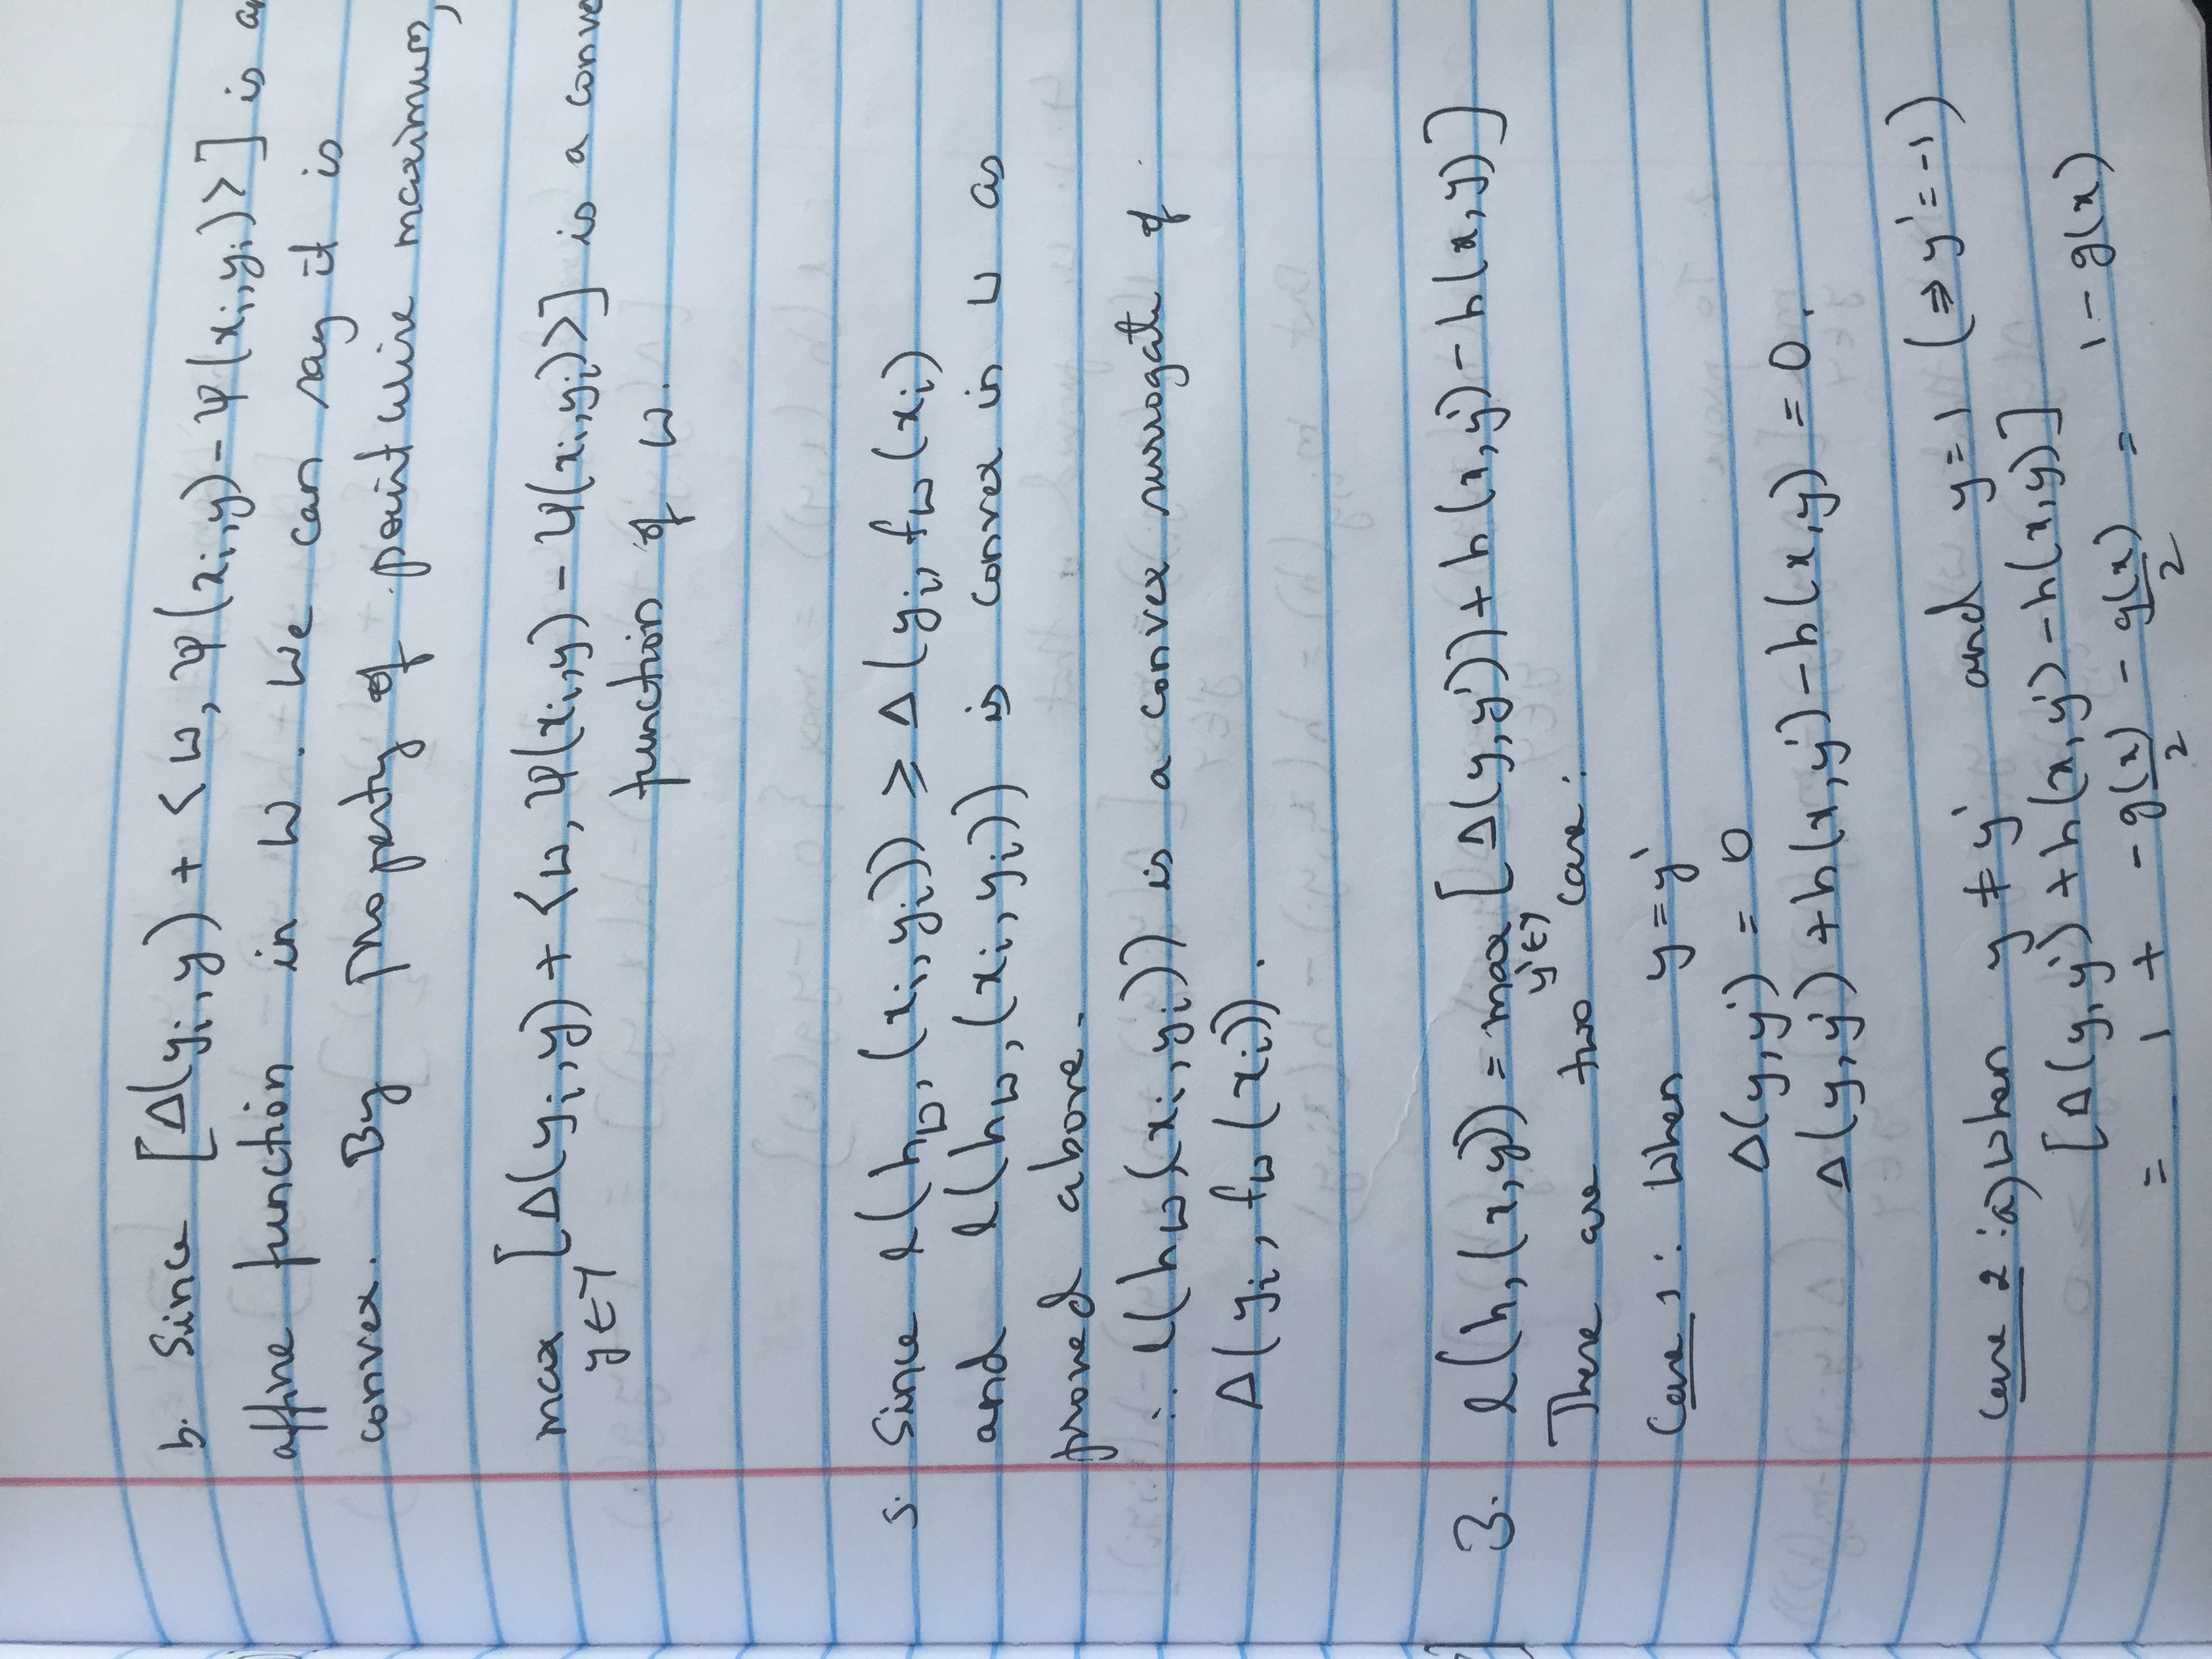 b. Since [Δ(yᵢ, y) + <w, Ψ(xᵢ, y) - Ψ(xᵢ, yᵢ)>] is an
affine function in w. We can say it is
convex. By property of pointwise maximum,
max [Δ(yᵢ, y) + <w, Ψ(xᵢ, y) - Ψ(xᵢ, yᵢ)>] is a conve
y∈Y
function of w.
5. Since l(h_w, (xᵢ, yᵢ)) ≥ Δ(yᵢ, f_w(xᵢ)
and l(h_w, (xᵢ, yᵢ)) is convex in w as
proved above.
∴ l(h_w(xᵢ, yᵢ)) is a convex surrogate of
Δ(yᵢ, f_w(xᵢ)).
3. l(h, (x, y)) = max [Δ(y, y')) + h(x, y') - h(x, y)]
y'∈Y
There are two case:
Case 1: When y = y'
Δ(y, y') = 0
Δ(y, y') + h(x, y') - h(x, y) = 0.
Case 2: a) When y ≠ y' and y = 1 (⇒ y' = -1)
[Δ(y, y') + h(x, y') - h(x, y)]
= 1 + -g(x)/2 - g(x)/2 = 1 - g(x)